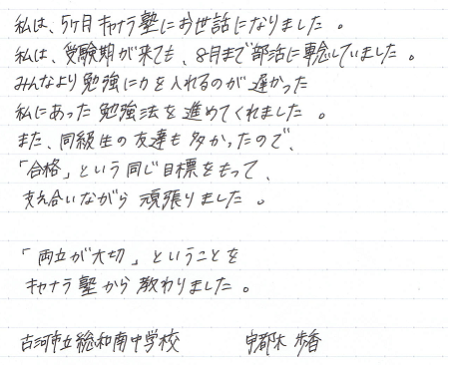 私は、5ヶ月キャナラ塾にお世話になりました。
私は、受験期が来ても、8月まで部活に専念していました。
みんなより勉強に力を入れるのが遅かった
私にあった勉強法を進めてくれました。
また、同級生の友達も多かったので、
「合格」という同じ目標をもって、
支え合いながら頑張りました。
「両立が大切」ということを
キャナラ塾から教わりました。
古河市立総和南中学校 宇都木 歩香